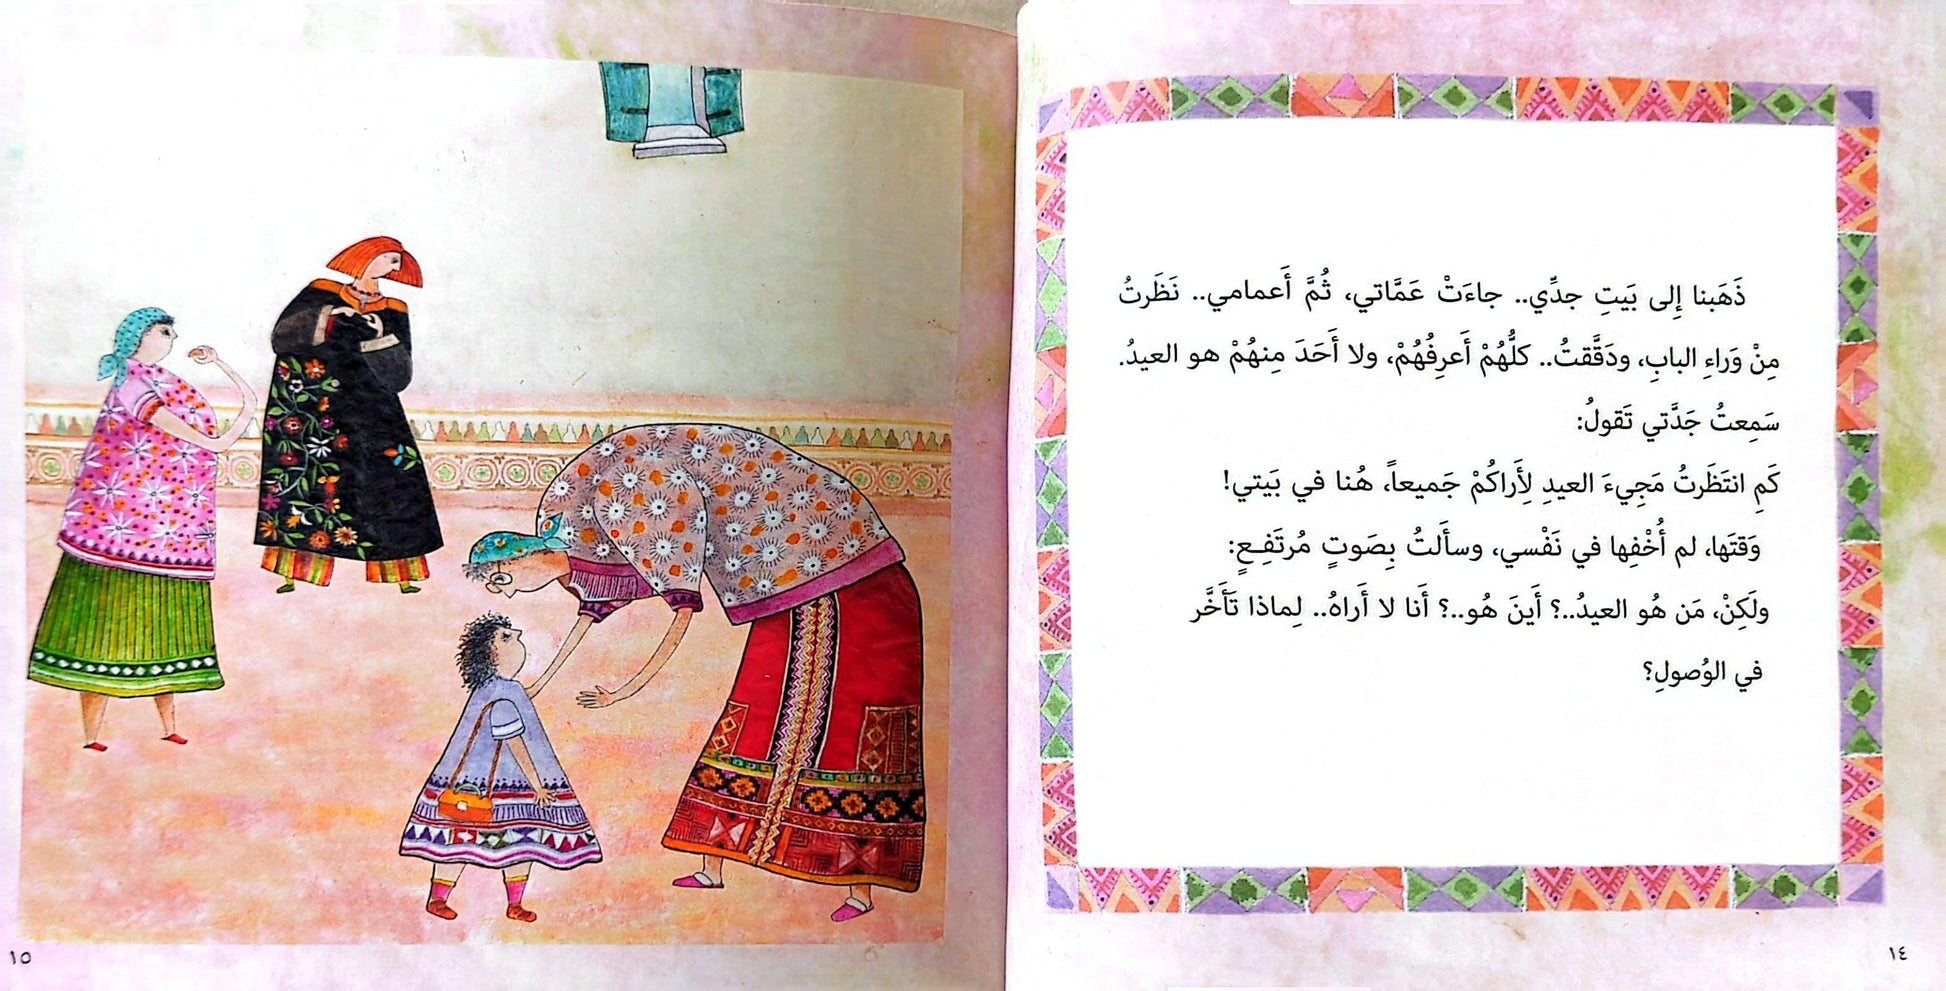 ذَهَبنا إِلى بَيتِ جدِّي.. جاءَتْ عَمَّاتي، ثُمَّ أَعمامي.. نَظَرتُ
مِنْ وَراءِ البابِ، ودَقَّقتُ.. كلُّهُمْ أَعرِفُهُمْ، ولا أَحَدَ مِنهُمْ هو العيدُ.
سَمِعتُ جَدَّتي تَقولُ:
كَمِ انتَظَرتُ مَجِيءَ العيدِ لِأَراكُمْ جَميعاً، هُنا في بَيتي!
وَقتَها، لم أُخْفِها في نَفْسي، وسأَلتُ بِصَوتٍ مُرتَفِـعٍ:
ولَكِنْ، مَن هُو العيدُ..؟ أَينَ هُو..؟ أَنا لا أَراهُ.. لِماذا تَأَخَّر
في الوُصولِ؟
١٤
١٥